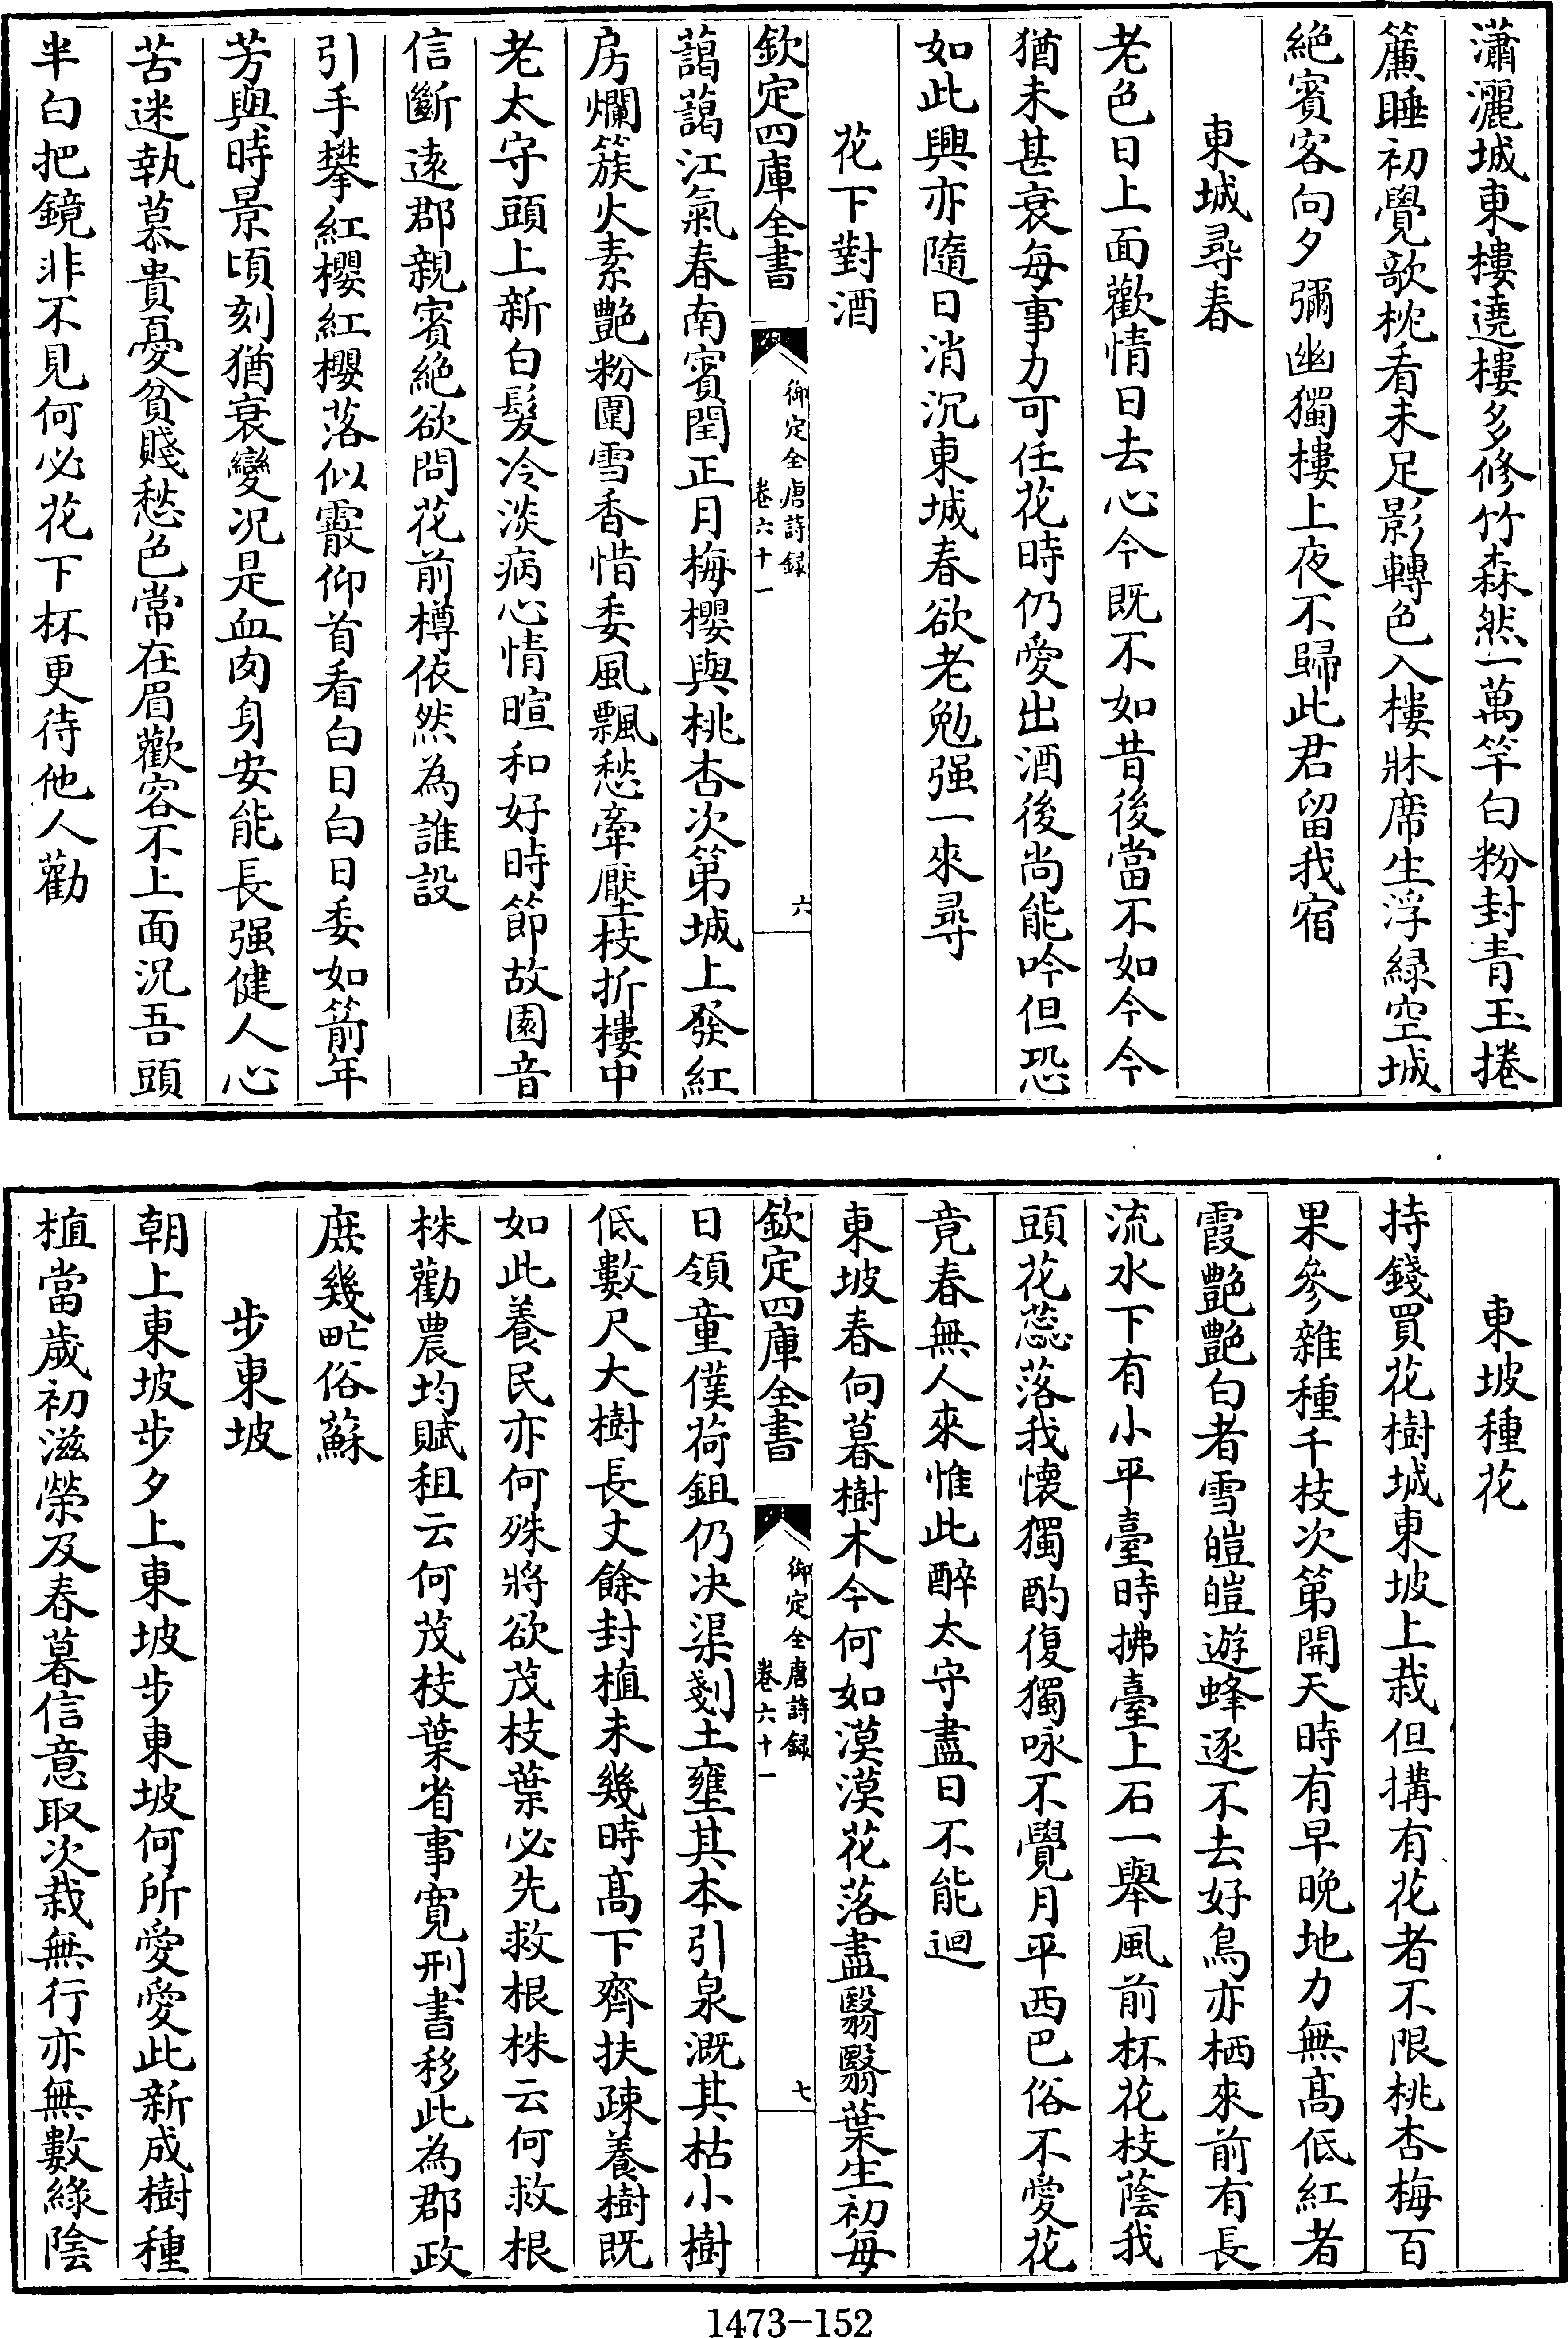 瀟灑城東樓遶樓多修竹森然一萬竿白粉封青玉捲
簾睡初覺欹枕看未足影轉色入樓牀席生浮緑空城
絶賓客向夕彌幽獨樓上夜不歸此君留我宿
東城尋春
老色日上面歡情日去心今既不如昔後當不如今今
猶未甚衰每事力可任花時仍愛出酒後尚能吟但恐
如此興亦隨日消沉東城春欲老勉强一來尋
花下對酒
欽定四庫全書
御定全唐詩録
卷六十一
六
藹藹江氣春南賓閏正月梅櫻與桃杏次第城上發紅
房爛簇火素艶粉圍雪香惜委風飄愁牽壓枝折樓中
老太守頭上新白髮冷淡病心情暄和好時節故園音
信斷逺郡親賓絶欲問花前樽依然為誰設
引手攀紅櫻紅櫻落似霰仰首看白日白日委如箭年
芳與時景頃刻猶衰變况是血肉身安能長强健人心
苦迷執慕貴憂貧賤愁色常在眉歡容不上面況吾頭
半白把鏡非不見何必花下杯更待他人勸
東坡種花
持錢買花樹城東坡上栽但搆有花者不限桃杏梅百
果參雜種千枝次第開天時有早晚地力無髙低紅者
霞艶艶白者雪皚皚遊蜂逐不去好鳥亦栖來前有長
流水下有小平臺時拂臺上石一舉風前杯花枝蔭我
頭花蕊落我懷獨酌復獨咏不覺月平西巴俗不愛花
竟春無人來惟此醉太守盡日不能迴
東坡春向暮樹木今何如漠漠花落盡翳翳葉生初每
欽定四庫全書
御定全唐詩録
卷六十一
七
日領童僕荷鉏仍決渠剗土壅其本引泉溉其枯小樹
低數尺大樹長丈餘封植未幾時髙下齊扶疎養樹既
如此養民亦何殊將欲茂枝葉必先救根株云何救根
株勸農均賦租云何茂枝葉省事寛刑書移此為郡政
庶幾甿俗蘇
步東坡
朝上東坡步夕上東坡步東坡何所愛愛此新成樹種
植當歲初滋榮及春暮信意取次栽無行亦無數綠陰
1473—152